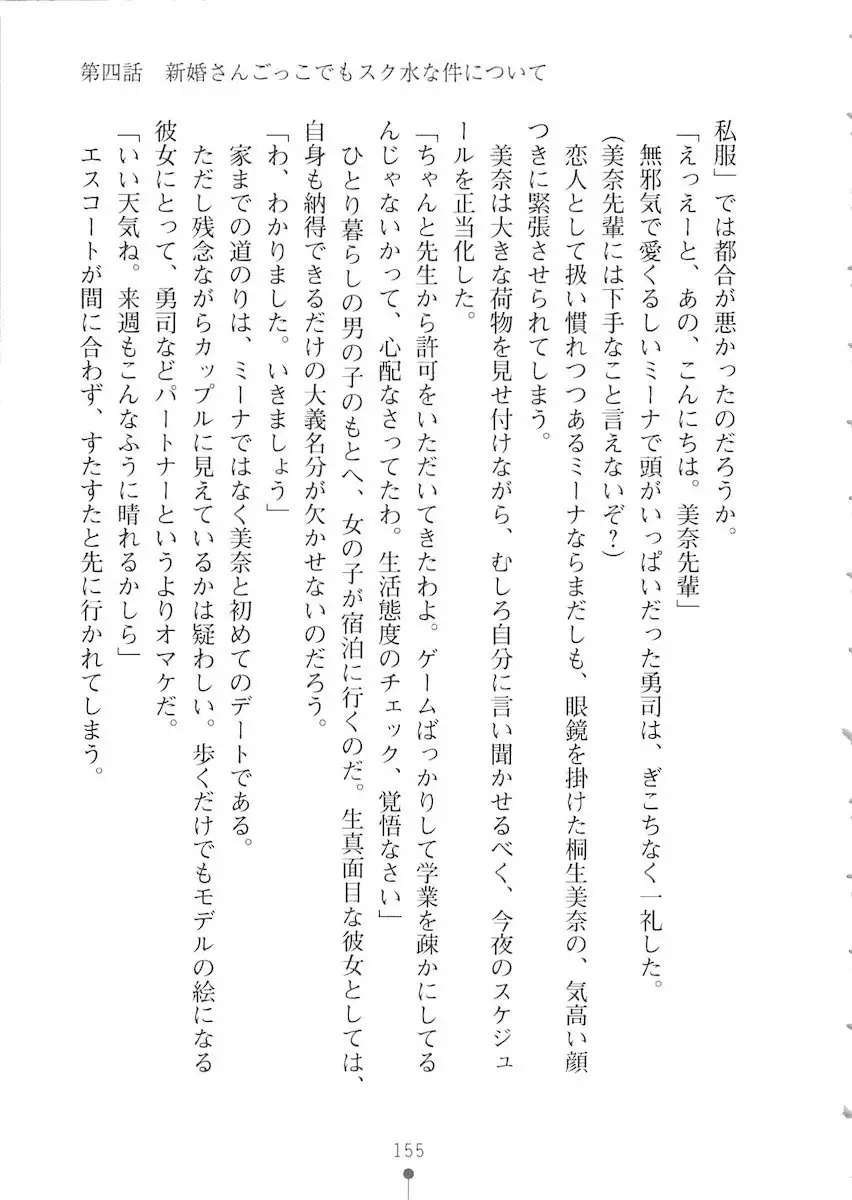 第四話　新婚さんごっこでもスク水な件について
私服」では都合が悪かったのだろうか。
「えっえーと、あの、こんにちは。美奈先輩」
無邪気で愛くるしいミーナで頭がいっぱいだった勇司は、ぎこちなく一礼した。
(美奈先輩には下手なこと言えないぞ？)
恋人として扱い慣れつつあるミーナならまだしも、眼鏡を掛けた桐生美奈の、気高い顔
つきに緊張させられてしまう。
美奈は大きな荷物を見せ付けながら、むしろ自分に言い聞かせるべく、今夜のスケジュ
ールを正当化した。
「ちゃんと先生から許可をいただいてきたわよ。ゲームばっかりして学業を疎かにしてる
んじゃないかって、心配なさってたわ。生活態度のチェック、覚悟なさい」
ひとり暮らしの男の子のもとへ、女の子が宿泊に行くのだ。生真面目な彼女としては、
自身も納得できるだけの大義名分が欠かせないのだろう。
「わ、わかりました。いきましょう」
家までの道のりは、ミーナではなく美奈と初めてのデートである。
ただし残念ながらカップルに見えているかは疑わしい。歩くだけでもモデルの絵になる
彼女にとって、勇司などパートナーというよりオマケだ。
「いい天気ね。来週もこんなふうに晴れるかしら」
エスコートが間に合わず、すたすたと先に行かれてしまう。
155